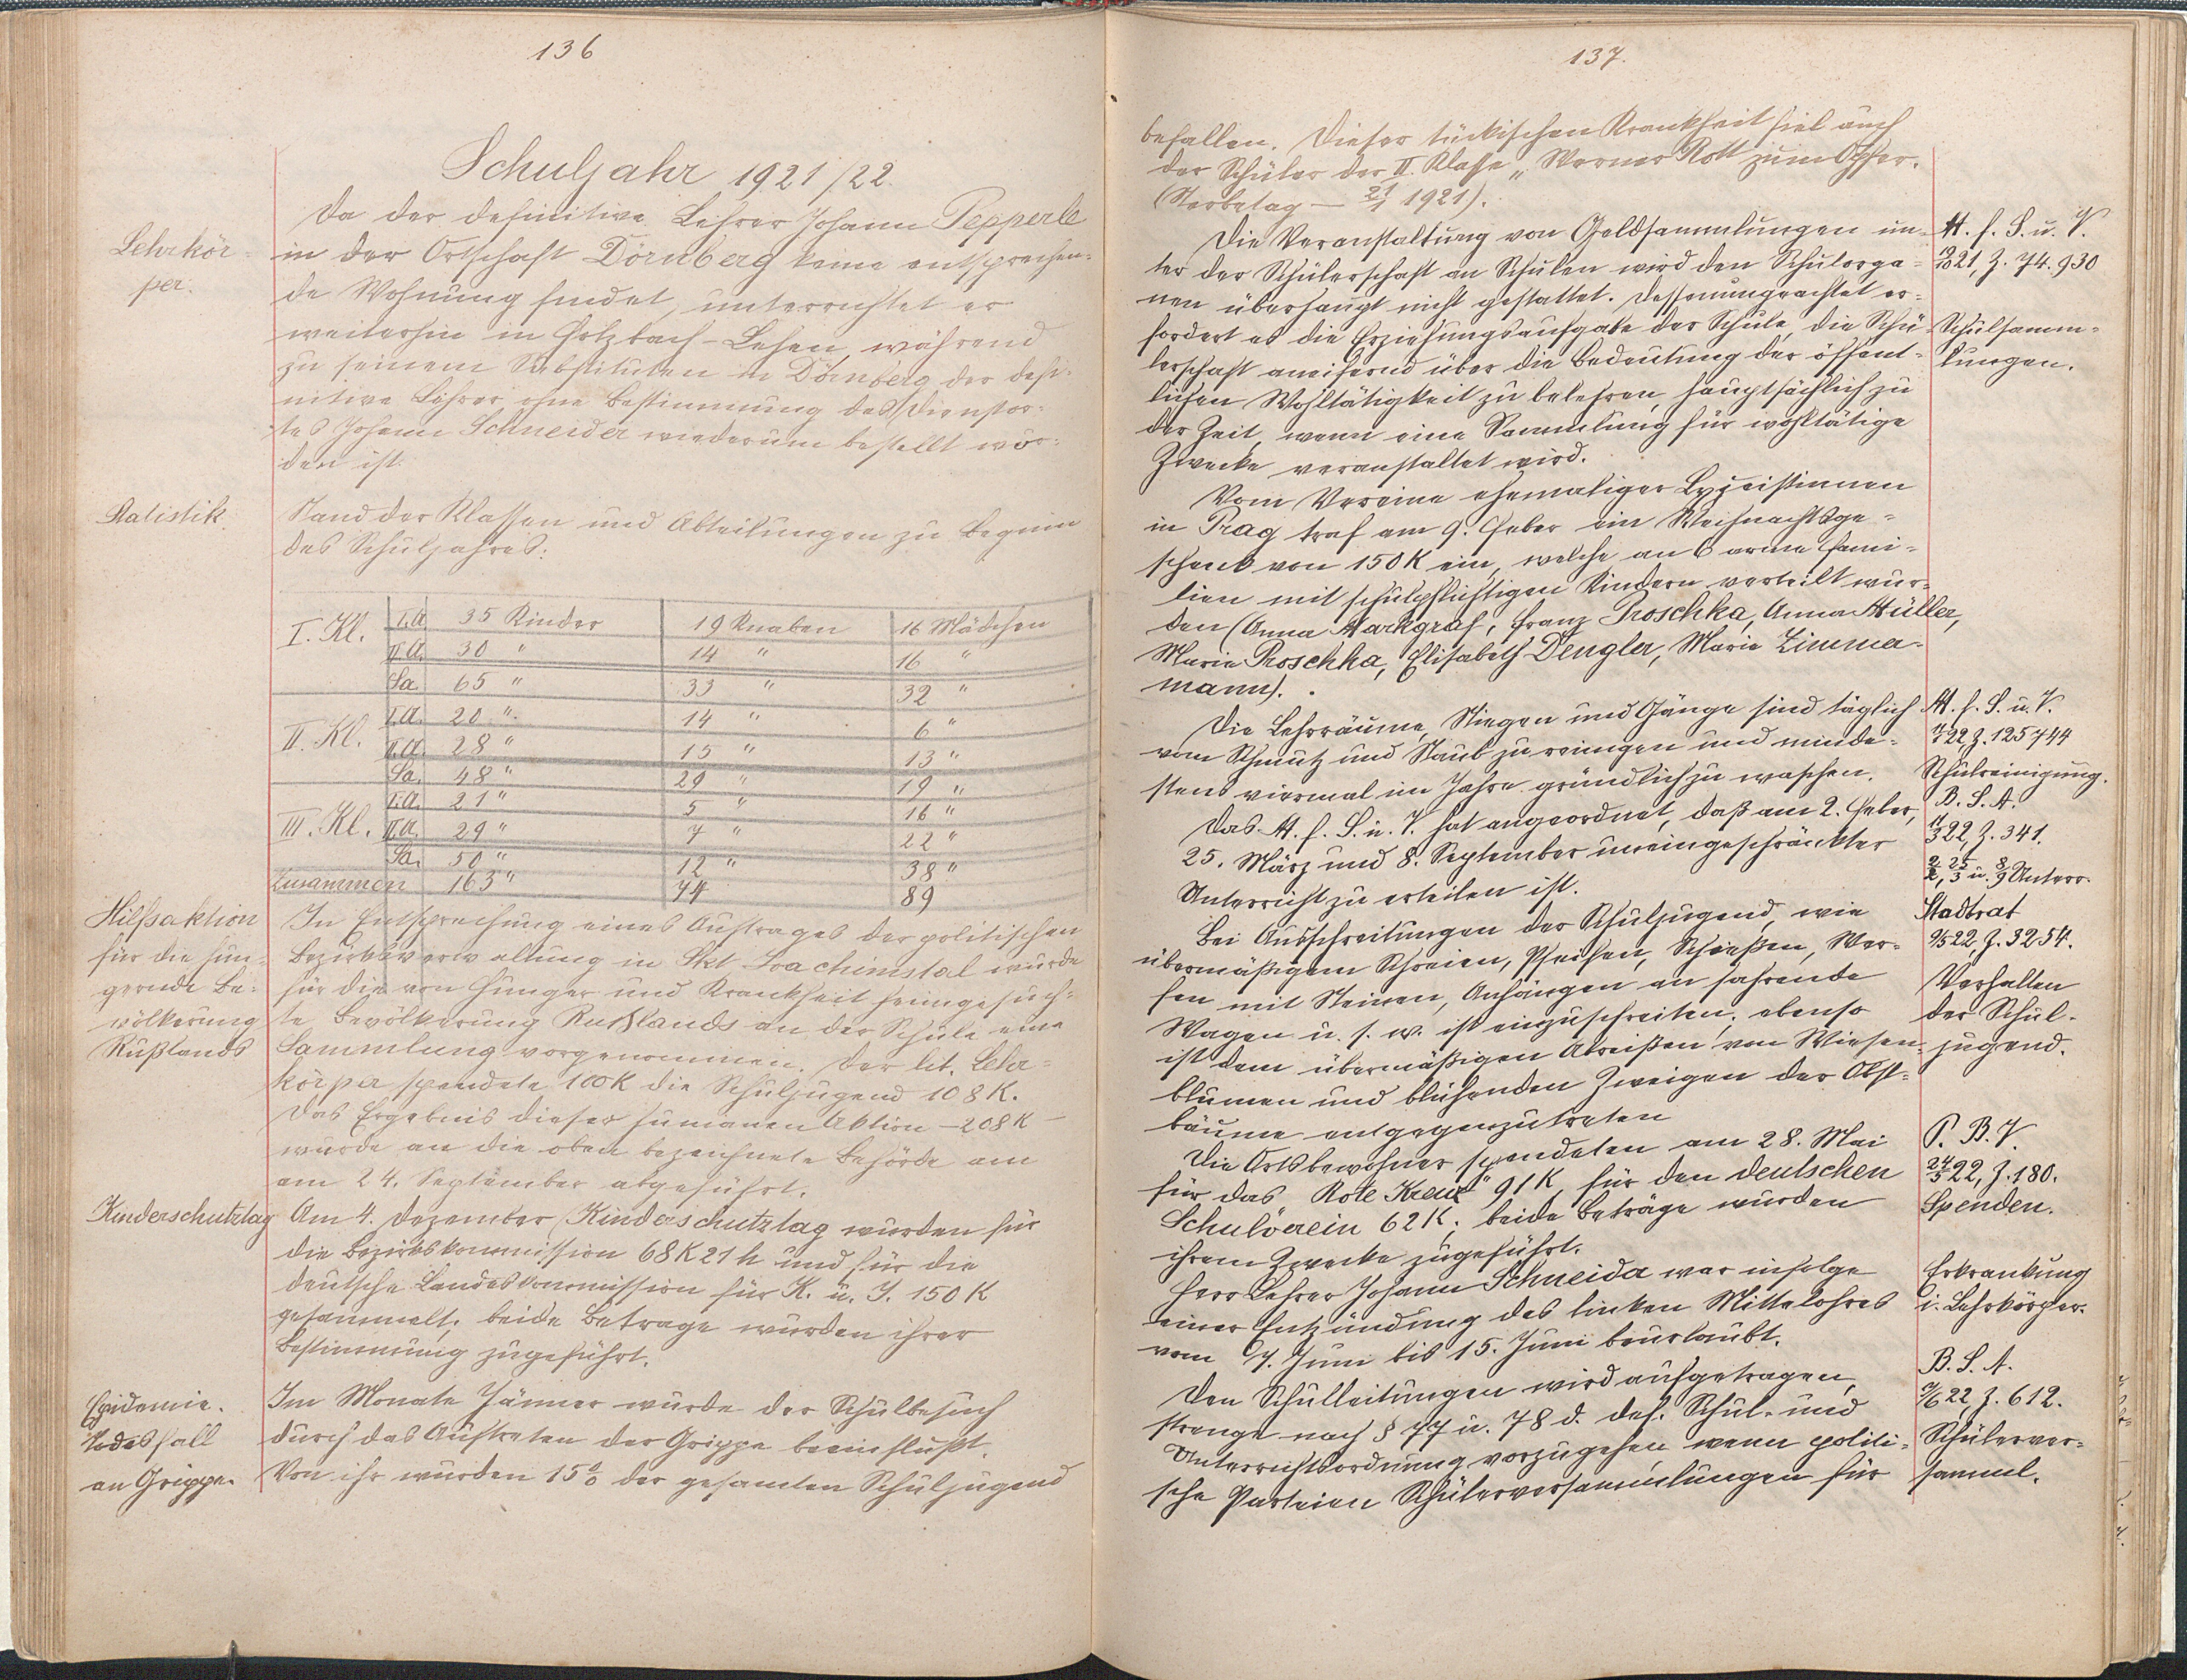 136
Schuljahr 1921/22.
Lehrkör-
per.
Da der definitive Lehrer Johann Pepperle
in der Ortschaft Dörnberg keine entsprechen-
de Wohnung findet, unterrichtet er
weiterhin in Holzbach-Lehen, während
zu seinem Substituten in Dörnberg der defi-
nitive Lehrer ohne Bestimmung des Dienstor-
tes Johann Schneider wiederum bestellt wor-
den ist.
Statistik.
Stand der Klassen und Abteilungen zu Beginn
des Schuljahres:
I. Kl. I.A. 35 Kinder 19 Knaben 16 Mädchen
II.A. 30 " 14 " 16 "
Sa. 65 " 33 " 32 "
II. Kl. I.A. 20 " 14 " 6 "
II.A. 28 " 15 " 13 "
Sa. 48 " 29 " 19 "
III. Kl. I.A. 21 " 5 " 16 "
II.A. 29 " 7 " 22 "
Sa. 50 " 12 " 38 "
Zusammen 163 " 74 89
Hilfsaktion
für die hun-
gernde Be-
völkerung
Rußlands
In Entsprechung eines Auftrages der politischen
Bezirksverwaltung in Skt Joachimstal wurde
für die von Hunger und Krankheit heimgesuch-
te Bevölkerung Rußlands an der Schule eine
Sammlung vorgenommen. Der lit. Lehr-
körper spendete 100 K die Schuljugend 108 K.
Das Ergebnis dieser humanen Aktion – 208 K –
wurde an die oben bezeichnete Behörde am
am 24. September abgeführt.
Kinderschutztag
Am 4. Dezember (Kinderschutztag wurden für
die Bezirkskommission 68 K 21 h und für die
deutsche Landeskommission für K. u. J. 150 K
gesammelt; beide Betrage wurden ihrer
Bestimmung zugeführt.
Epidemie.
Todesfall
an Grippe.
Im Monate Jänner wurde der Schulbesuch
durch das Auftreten der Grippe beeinflußt.
Von ihr wurden 15% der gesamten Schuljugend
137.
befallen. Dieser tückischen Krankheit fiel auch
der Schüler der II. Klasse „ Werner Rott zum Opfer.
(Sterbetag – 21/1 1921).
Die Veranstaltung von Geldsammlungen un-
ter der Schülerschaft an Schulen wird den Schulorga-
nen überhaupt nicht gestattet. Dessenungeachtet er-
fordert es die Erziehungsaufgabe der Schule, die Schü-
lerschaft aneifernd über die Bedeutung der öffent-
lichen Wohltätigkeit zu belehren, hauptsächlich zu
der Zeit, wenn eine Sammlung für wohltätige
Zwecke veranstaltet wird.
M. f. S. u. V.
21, Z. 74.930
Schulsamm-
lungen.
Vom Vereine ehemaliger Lyzeistinnen
in Prag traf am 9. Feber ein Weihnachtsge-
schenk von 150 K ein, welche an 6 arme Fami-
lien mit schulpflichtigen Kindern verteilt wur-
den (Anna Markgraf, Franz Proschka, Anna Müller,
Marie Proschka, Elisabeth Dengler, Marie Zimmer-
mann).
Die Lehrräume, Stiegen und Gänge sind täglich
vom Schmutz und Staub zu reinigen und minde-
stens viermal im Jahre gründlich zu waschen.
M. f. S. u. V.
22, Z. 125744
Schulreinigung.
Das M. f. S. u. V. hat angeordnet, daß am 2. Feber,
25. März und 8. September uneingeschränkter
Unterricht zu erteilen ist.
B. S. A.
11/3 22, Z. 341.
2/2, 25/3 u. 8/9 Unterr.
Bei Ausschreitungen der Schuljugend, wie
übermäßigem Schreien, Pfeifen, Schießen, Wer-
fen mit Steinen, Anhängen an fahrende
Wagen u. s. w. ist einzuschreiten; ebenso
ist dem übermäßigen Abreißen von Wiesen-
blumen und blühenden Zweigen der Obst-
bäume entgegenzutreten
Stadtrat
9/5 22, Z. 3254.
Verhalten
der Schul-
jugend.
Die Ortsbewohner spendeten am 28. Mai
für das Rote Kreuz" 91 K, für den deutschen
Schulverein 62 K; beide Beträge wurden
ihrem Zwecke zugeführt.
P. B. V.
24/5 22, Z. 180.
Spenden.
Herr Lehrer Johann Schneider war infolge
einer Entzündung des linken Mittelohres
vom 7. Juni bis 15. Juni beurlaubt.
Erkrankung
i. Lehrkörper.
Den Schulleitungen wird aufgetragen,
strenge nach § 77 u. 78 d. def. Schul- und
Unterrichtsordnung vorzugehen, wenn politi-
sche Parteien Schülerversammlungen für
B. S. A.
22, Z. 612.
Schülerver-
samml.